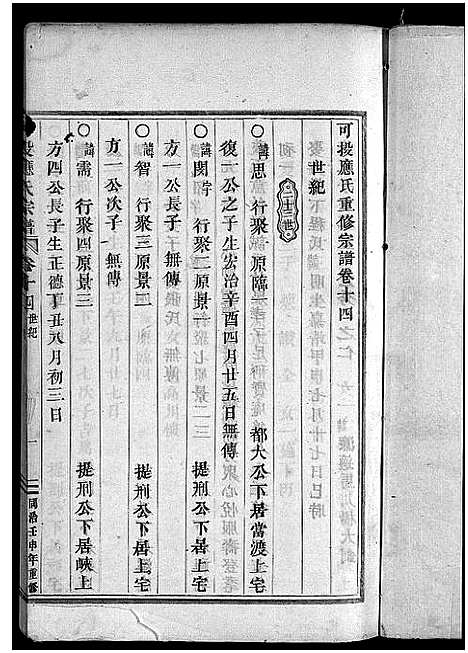 可投應氏重修宗譜卷十四
世紀
二十三世
諱思 行聚一原臨一 都大公下居當渡上宅
復一公之子生宏治辛酉四月廿五日無傳
諱閏 行聚二原景一 提刑公下居峽上宅
方一公長子無傳
諱智 行聚三原景二 提刑公下居峽上宅
方一公次子無傳
諱需 行聚四原景三 提刑公下居峽上
方四公長子生正德丁丑八月初三日
應氏宗譜 卷十四 世紀 一 同治壬申年重修